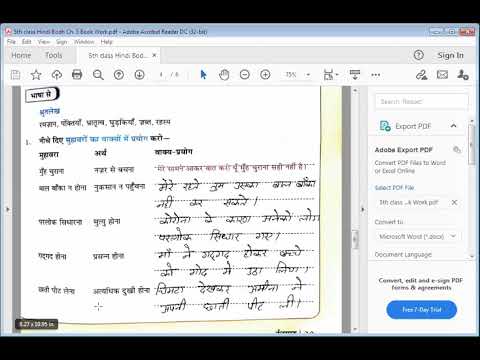 5th class Hindi Boodh Ch. 3 Book Work.pdf - Adobe Acrobat Reader DC (32-bit)
5th class Hindi Boo...
Sign In
75%
Search 'Rotate'
Export PDF
Adobe Export PDF
Convert PDF Files to Word
or Excel Online
Select PDF File
5th class ...k Work.pdf
Convert to
Microsoft Word (*.docx)
Document Language:
Convert, edit and e-sign PDF
forms & agreements
Free 7-Day Trial
8.27 x 10.95 in
भाषा से
श्रुतलेख
रमज़ान, पंक्तियाँ, भ्रातृत्व, घुड़कियाँ, ज़ब्त, रहस्य
1. नीचे दिए मुहावरों का वाक्यों में प्रयोग करो—
मुहावरा अर्थ वाक्य-प्रयोग
मुँह चुराना नज़र से बचना मेरे सामने आकर बात करो यूँ मुँह चुराना सही नहीं है।
बाल बाँका न होना नुकसान न पहुँचना मेरे रहते तुम उसका बाल बाँका
नहीं कर सकते।
परलोक सिधारना मृत्यु होना कोरोना के कारण अनेकों लोग
परलोक सिधार गए।
गद्गद होना प्रसन्न होना माँ ने गद्गद होकर बच्चे
को गोद में उठा लिया।
छाती पीट लेना अत्यधिक दुखी होना चिमटा देखकर अमीना ने
अपनी छाती पीट ली।